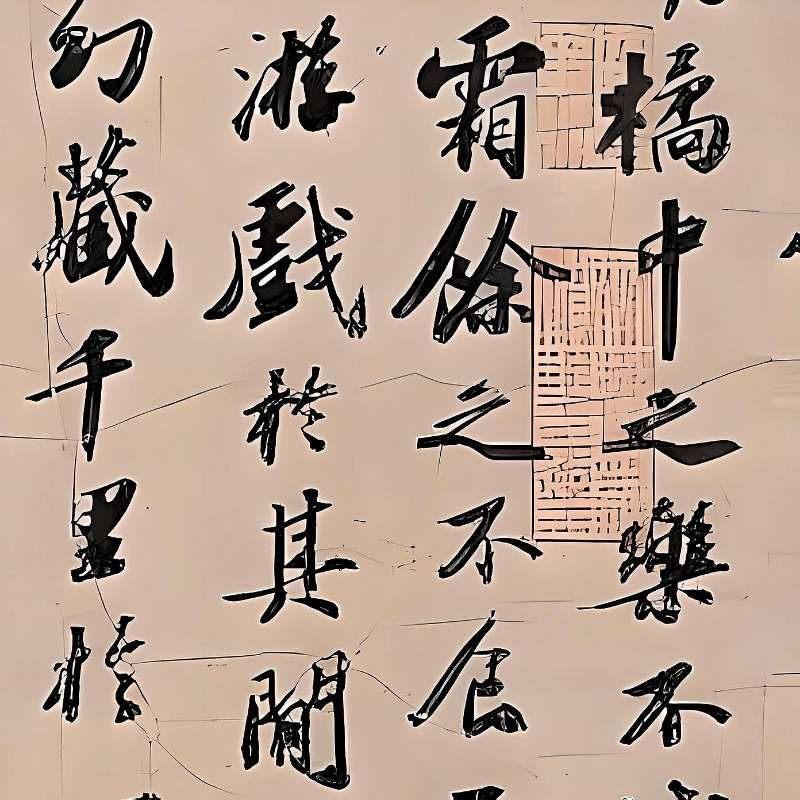 橘中之樂不
霜餘之不食
游戲於其間
幻藏千里於